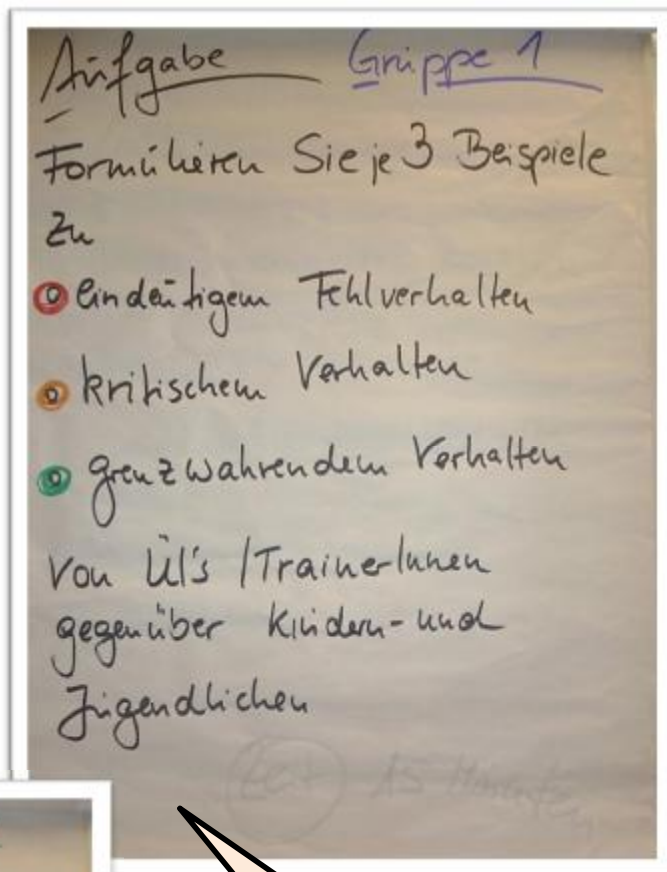 Aufgabe Gruppe 1
Formulieren Sie je 3 Beispiele
zu
eindeutigem Fehlverhalten
kritischem Verhalten
grenzwahrendem Verhalten
von ÜL's / TrainerInnen
gegenüber Kindern- und
Jugendlichen
Zeit 15 Minuten